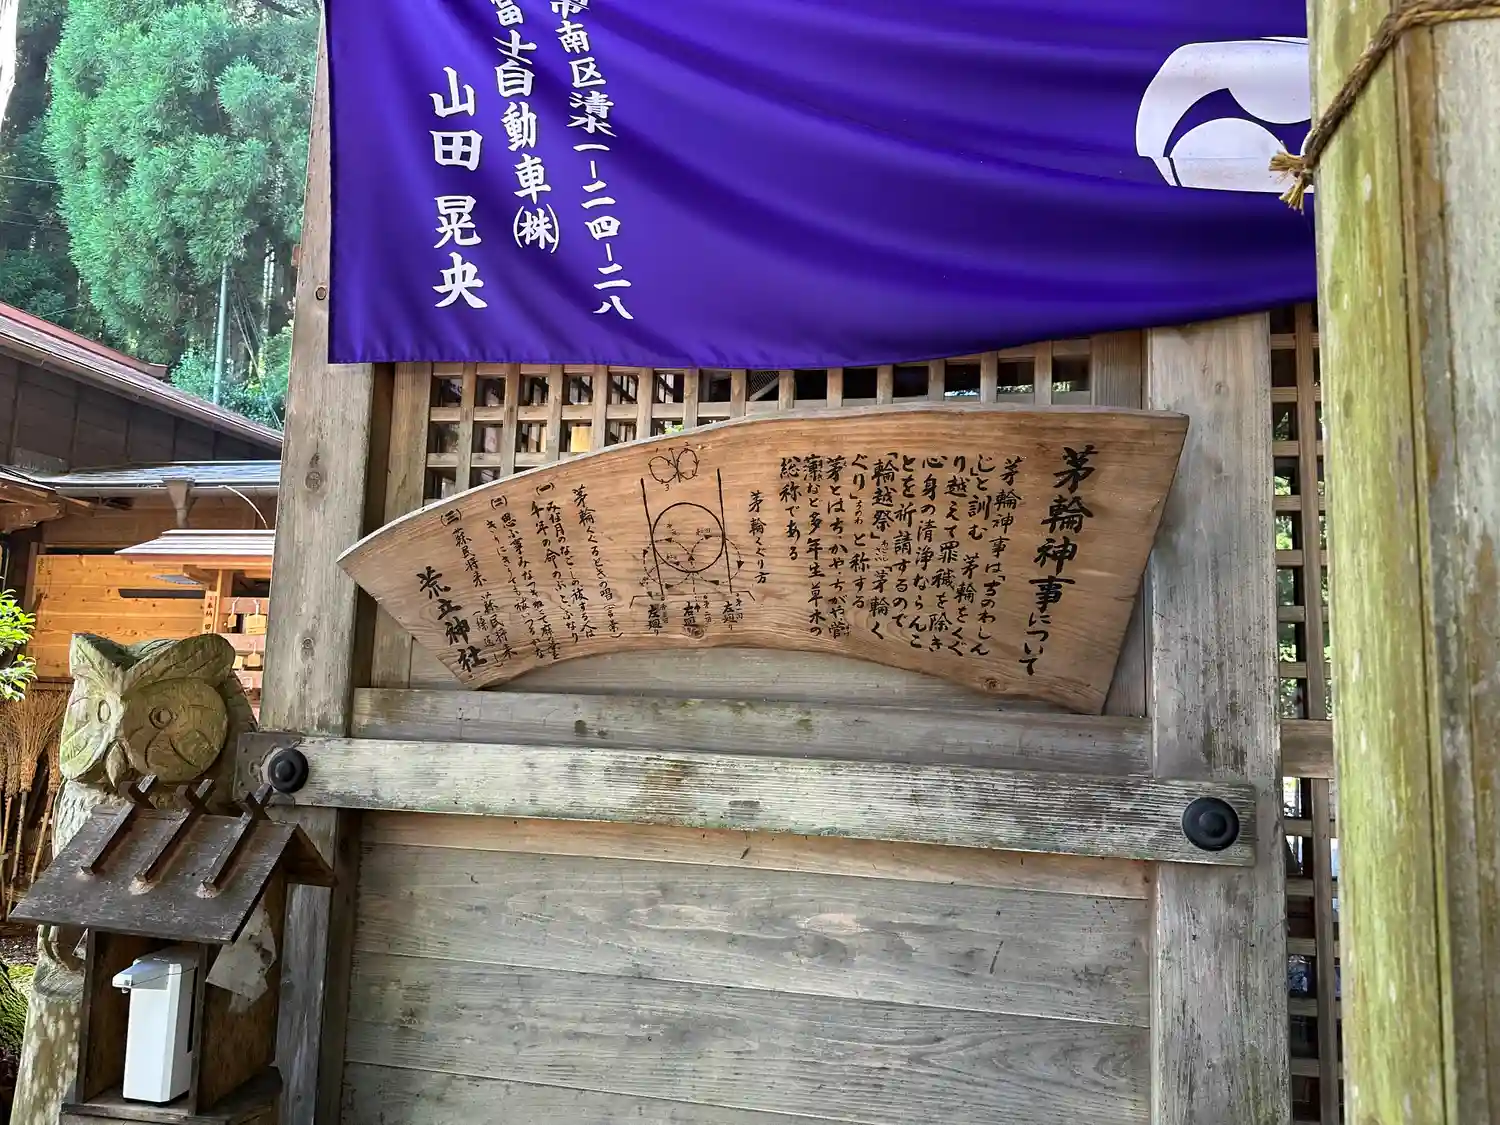 市南区清水一-二四-二八
富士自動車㈱
山田晃央
茅輪神事について
茅輪神事は「ちのわしん
じ」と訓む 茅輪をくぐ
り越えて罪穢を除き
心身の清浄ならんこ
とを祈請するので
「輪越祭」「茅輪く
ぐり」と称する
茅とはちがやちがや菅
薄など多年生草木の
総称である
茅輪くぐり方
左廻り
右廻り
左廻り
茅輪くぐるときの唱(言葉)
(一) みな月のなごしの祓する人は
千年の命のぶといふなり
(二) 思ふ事みなつきねとて麻の葉を
きりにきりても祓いつるかな
(三) 蘇民将来 蘇民将来
荒立神社